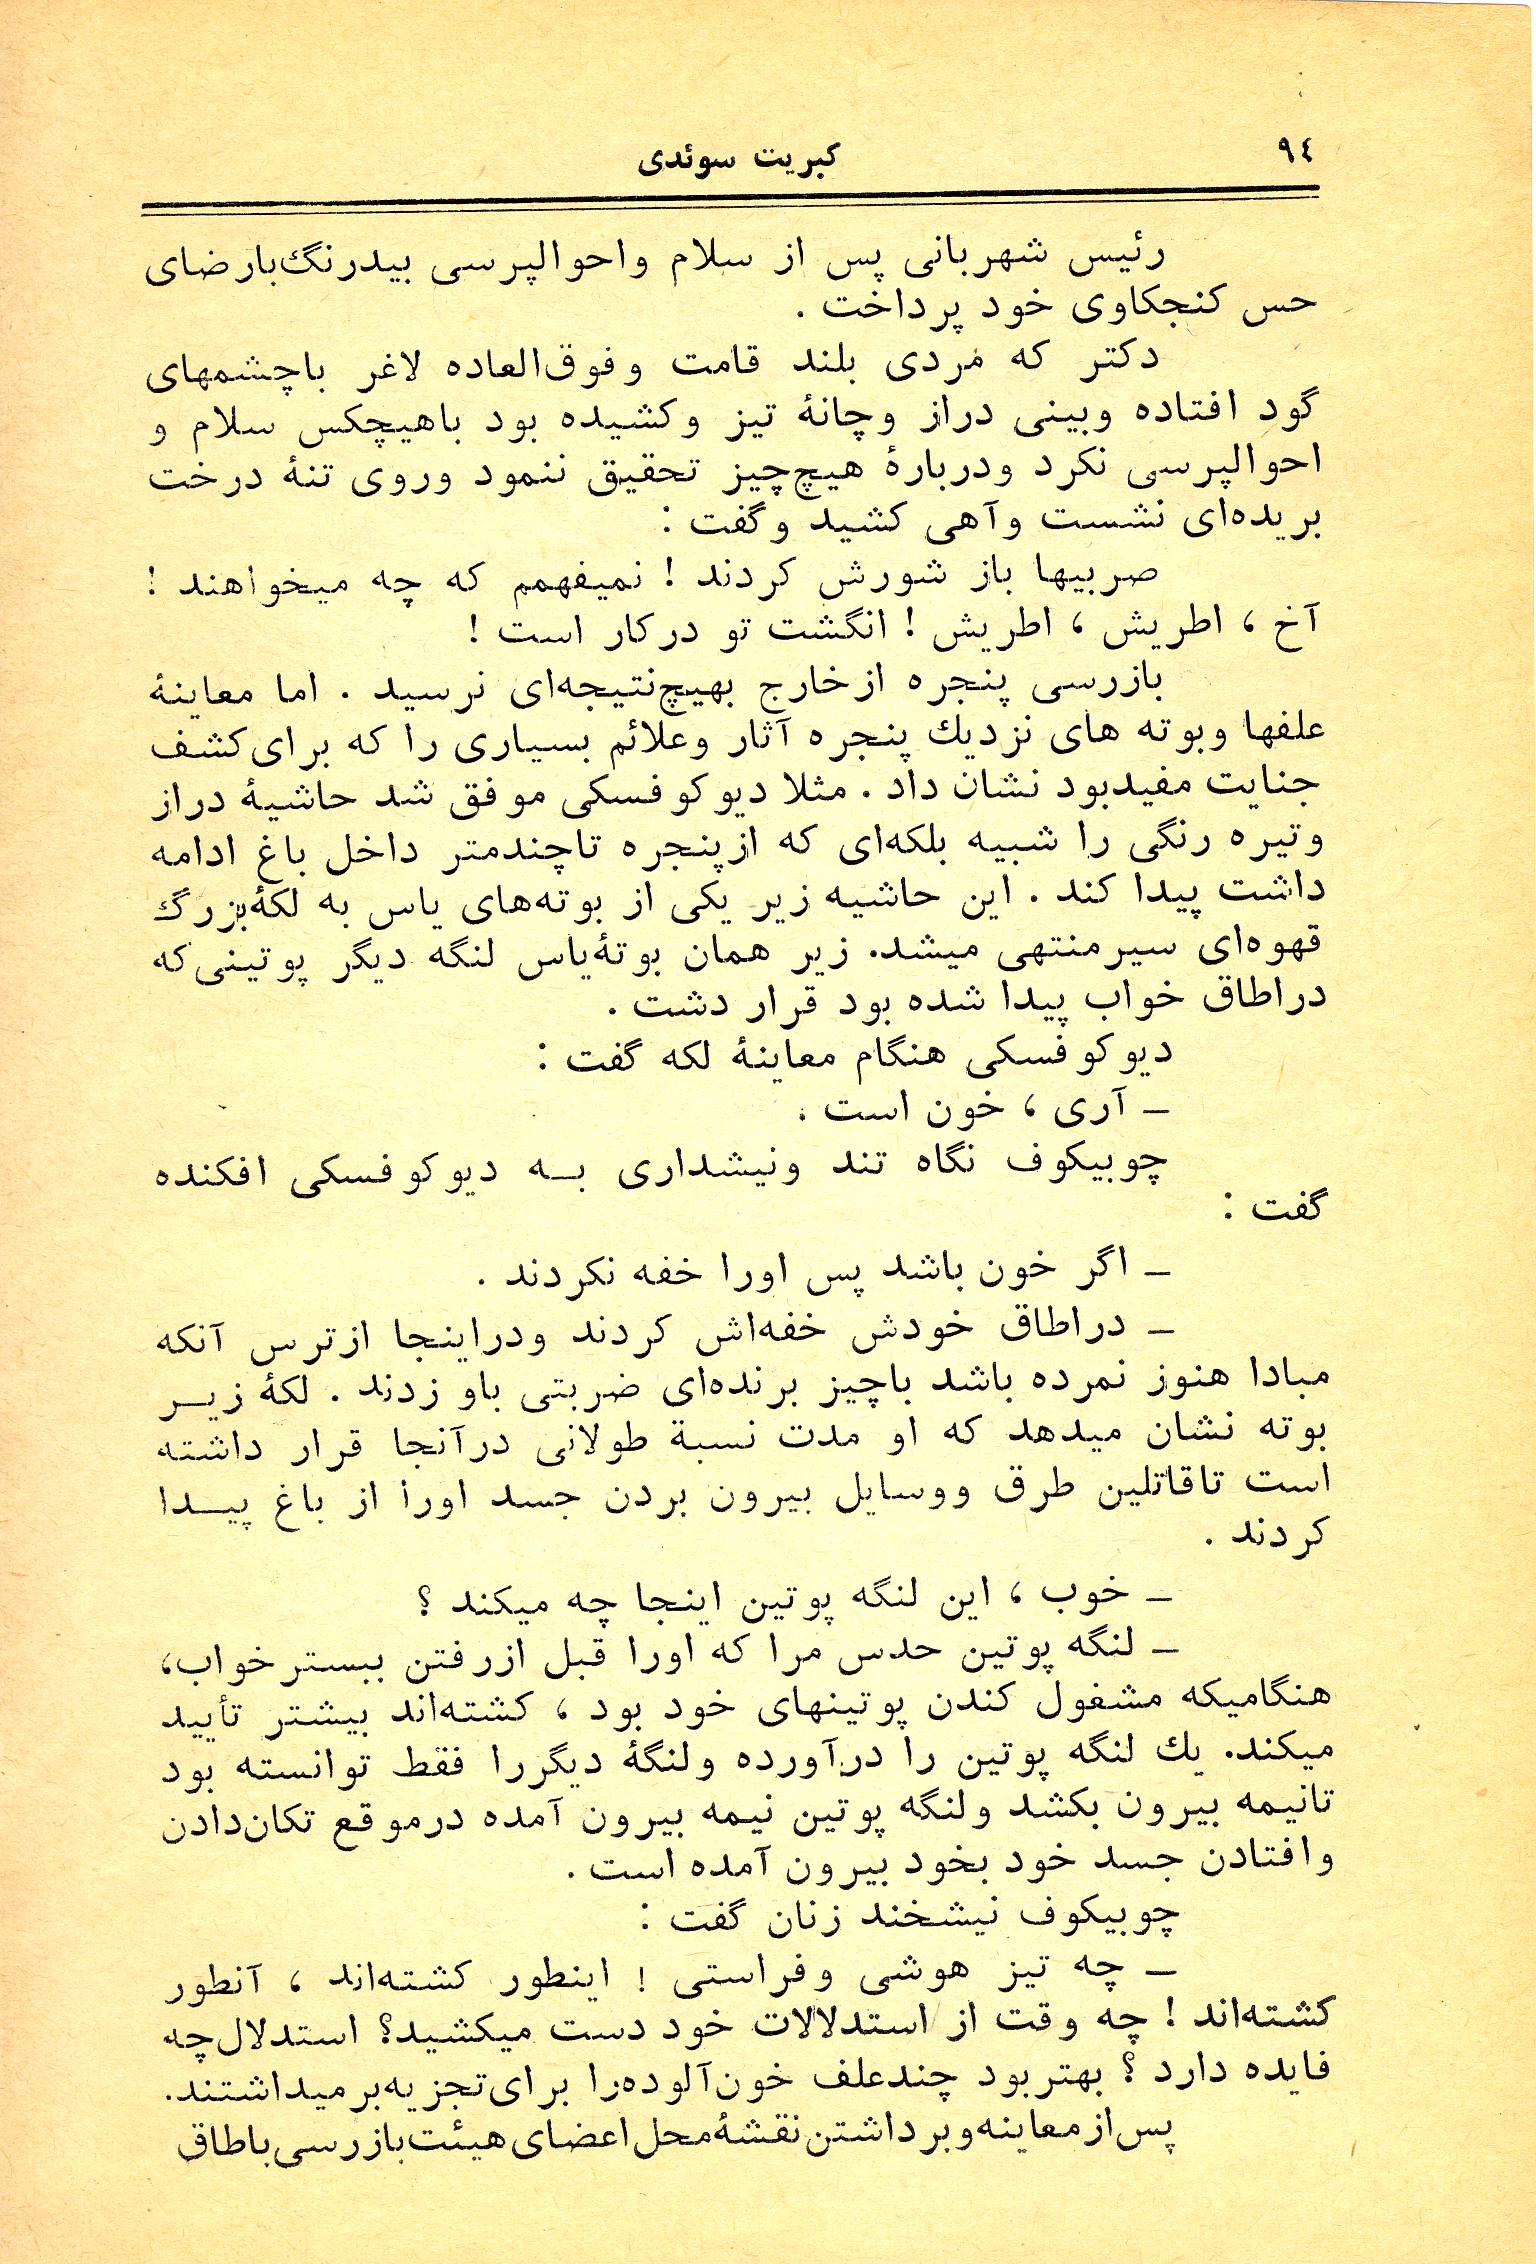 ۹٤
کبریت سوئدی
رئیس شهربانی پس از سلام واحوالپرسی بیدرنگ‌بارضای
حس کنجکاوی خود پرداخت .
دکتر که مردی بلند قامت وفوق‌العاده لاغر باچشمهای
گود افتاده وبینی دراز وچانهٔ تیز وکشیده بود باهیچکس سلام و
احوالپرسی نکرد ودربارهٔ هیچ‌چیز تحقیق ننمود وروی تنهٔ درخت
بریده‌ای نشست وآهی کشید وگفت :
صربیها باز شورش کردند ! نمیفهمم که چه میخواهند !
آخ ، اطریش ، اطریش ! انگشت تو درکار است !
بازرسی پنجره ازخارج بهیچ‌نتیجه‌ای نرسید . اما معاینهٔ
علفها وبوته های نزدیك پنجره آثار وعلائم بسیاری را که برای‌کشف
جنایت مفیدبود نشان داد . مثلا دیوکوفسکی موفق شد حاشیهٔ دراز
وتیره رنگی را شبیه بلکه‌ای که ازپنجره تاچندمتر داخل باغ ادامه
داشت پیدا کند . این حاشیه زیر یکی از بوته‌های یاس به لکهٔ‌بزرگ
قهوه‌ای سیرمنتهی میشد. زیر همان بوتهٔ‌یاس لنگه دیگر پوتینی‌که
دراطاق خواب پیدا شده بود قرار دشت .
دیوکوفسکی هنگام معاینهٔ لکه گفت :
ـ آری ، خون است .
چوبیکوف نگاه تند ونیشداری بـه دیوکوفسکی افکنده
گفت :
ـ اگر خون باشد پس اورا خفه نکردند .
ـ دراطاق خودش خفه‌اش کردند ودراینجا ازترس آنکه
مبادا هنوز نمرده باشد باچیز برنده‌ای ضربتی باو زدند . لکهٔ زیـر
بوته نشان میدهد که او مدت نسبة طولانی درآنجا قرار داشته
است تاقاتلین طرق ووسایل بیرون بردن جسد اورا از باغ پیـدا
کردند .
ـ خوب ، این لنگه پوتین اینجا چه میکند ؟
ـ لنگه پوتین حدس مرا که اورا قبل ازرفتن ببسترخواب،
هنگامیکه مشغول کندن پوتینهای خود بود ، کشته‌اند بیشتر تأیید
میکند. یك لنگه پوتین را درآورده ولنگهٔ دیگررا فقط توانسته بود
تانیمه بیرون بکشد ولنگه پوتین نیمه بیرون آمده درموقع تکان‌دادن
وافتادن جسد خود بخود بیرون آمده است .
چوبیکوف نیشخند زنان گفت :
ـ چه تیز هوشی وفراستی ! اینطور کشته‌اند ، آنطور
کشته‌اند ! چه وقت از استدلالات خود دست میکشید؟ استدلال‌چه
فایده دارد ؟ بهتربود چندعلف خون‌آلوده‌را برای‌تجزیه‌برمیداشتند.
پس‌ازمعاینه‌وبرداشتن‌نقشهٔ‌محل‌اعضای‌هیئت‌بازرسی‌باطاق